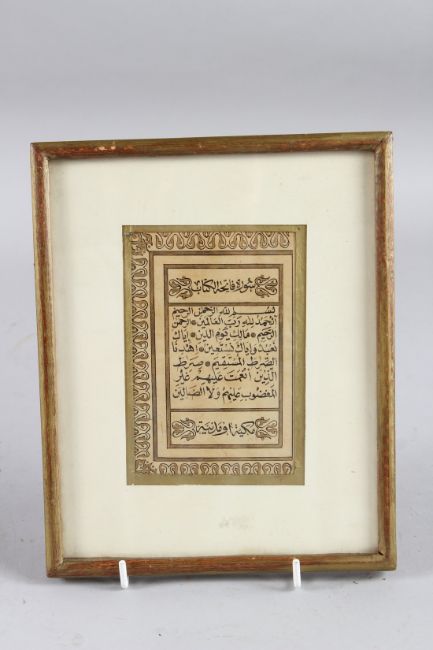 سورة فاتحة الكتاب
بسم الله الرحمن الرحيم
الحمد لله رب العالمين * الرحمن
الرحيم * مالك يوم الدين * إياك
نعبد وإياك نستعين * إهدنا
الصراط المستقيم * صراط
الذين أنعمت عليهم غير
المغضوب عليهم ولا الضالين
مكية أو مدنية